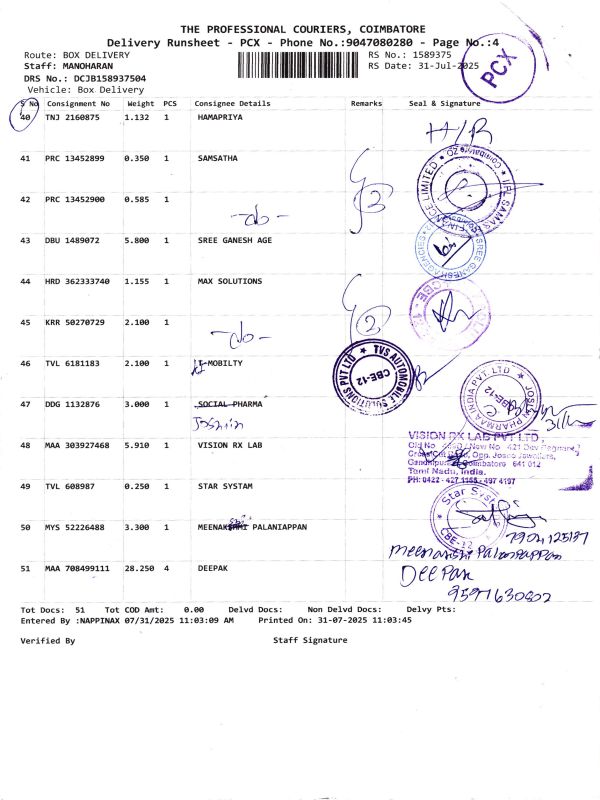 THE PROFESSIONAL COURIERS, COIMBATORE
Delivery Runsheet - PCX - Phone No.:9047080280 - Page No.:4
Route: BOX DELIVERY RS No.: 1589375
Staff: MANOHARAN RS Date: 31-Jul-2025
DRS No.: DCJB158937504
Vehicle: Box Delivery
PCX
S No Consignment No Weight PCS Consignee Details Remarks Seal & Signature
40 TNJ 2160875 1.132 1 HAMAPRIYA
H/R
41 PRC 13452899 0.350 1 SAMSATHA
42 PRC 13452900 0.585 1
-do- 2
43 DBU 1489072 5.800 1 SREE GANESH AGE
44 HRD 362333740 1.155 1 MAX SOLUTIONS
45 KRR 50270729 2.100 1
-do- 2
46 TVL 6181183 2.100 1 LT-MOBILTY
TVS AUTOMOBILE SOLUTIONS PVT LTD
CBE-12
47 DDG 1132876 3.000 1 SOCIAL PHARMA
PHARMA INDIA PVT. LTD
CBE-12
48 MAA 303927468 5.910 1 VISION RX LAB
VISION RX LAB PVT LTD,
Opp. Josco Jewellers,
Gandhipuram, Coimbatore 641 012
Tamil Nadu, India.
PH: 0422 - 427 1155 - 497 4197
49 TVL 608987 0.250 1 STAR SYSTAM
Star
CBE-12
50 MYS 52226488 3.300 1 MEENAKSHMI PALANIAPPAN
51 MAA 708499111 28.250 4 DEEPAK
Deepak
Tot Docs: 51 Tot COD Amt: 0.00 Delvd Docs: Non Delvd Docs: Delvy Pts:
Entered By :NAPPINAX 07/31/2025 11:03:09 AM Printed On: 31-07-2025 11:03:45
Verified By Staff Signature